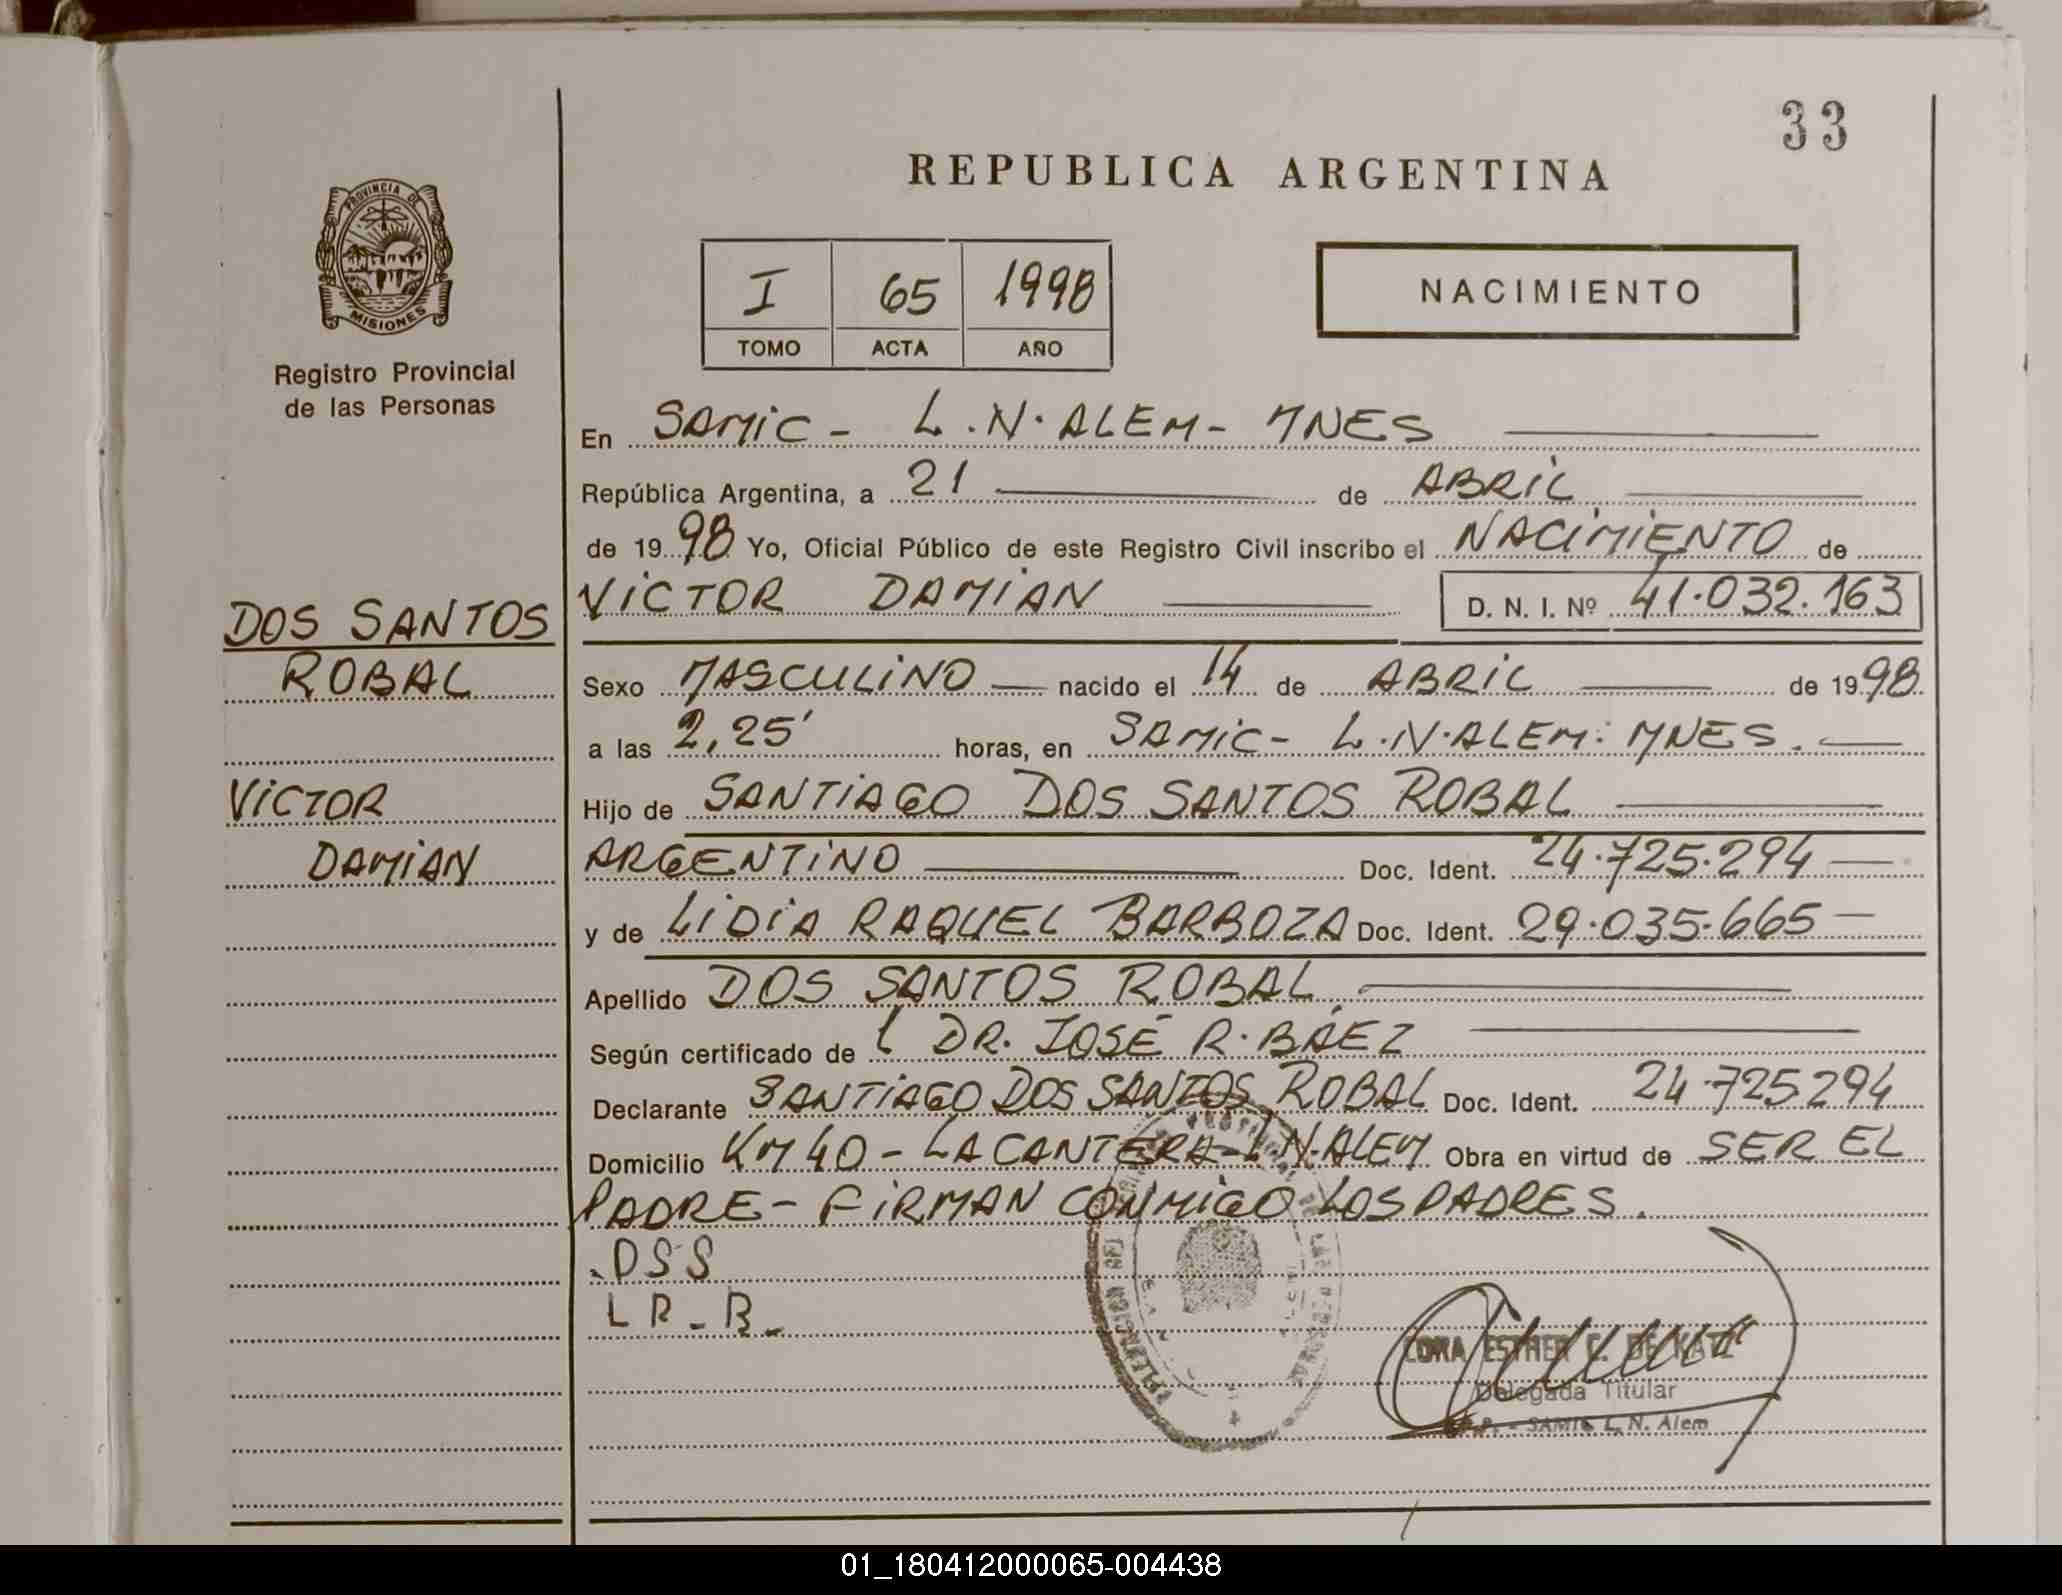 33
REPUBLICA ARGENTINA
PROVINCIA DE
MISIONES
Registro Provincial
de las Personas
I 65 1998
TOMO ACTA AÑO
NACIMIENTO
DOS SANTOS
ROBAL
VICTOR
DAMIAN
En SAMIC - L.N.ALEM - MNES
República Argentina, a 21 de ABRIL
de 1998 Yo, Oficial Público de este Registro Civil inscribo el NACIMIENTO de
VICTOR DAMIAN D. N. I. Nº 41.032.163
Sexo MASCULINO nacido el 14 de ABRIL de 1998
a las 2,25' horas, en SAMIC - L.N.ALEM. MNES.
Hijo de SANTIAGO DOS SANTOS ROBAL
ARGENTINO Doc. Ident. 24.725.294
y de LIDIA RAQUEL BARBOZA Doc. Ident. 29.035.665
Apellido DOS SANTOS ROBAL
Según certificado de DR. JOSÉ R. BÁEZ
Declarante SANTIAGO DOS SANTOS ROBAL Doc. Ident. 24.725.294
Domicilio KM 40 - LA CANTERA - L.N.ALEM Obra en virtud de SER EL
PADRE - FIRMAN CONMIGO LOS PADRES.
DSS
LR-B-
ESTHER DE KATZ
Delegada Titular
SAMIC L. N. Alem
01_180412000065-004438